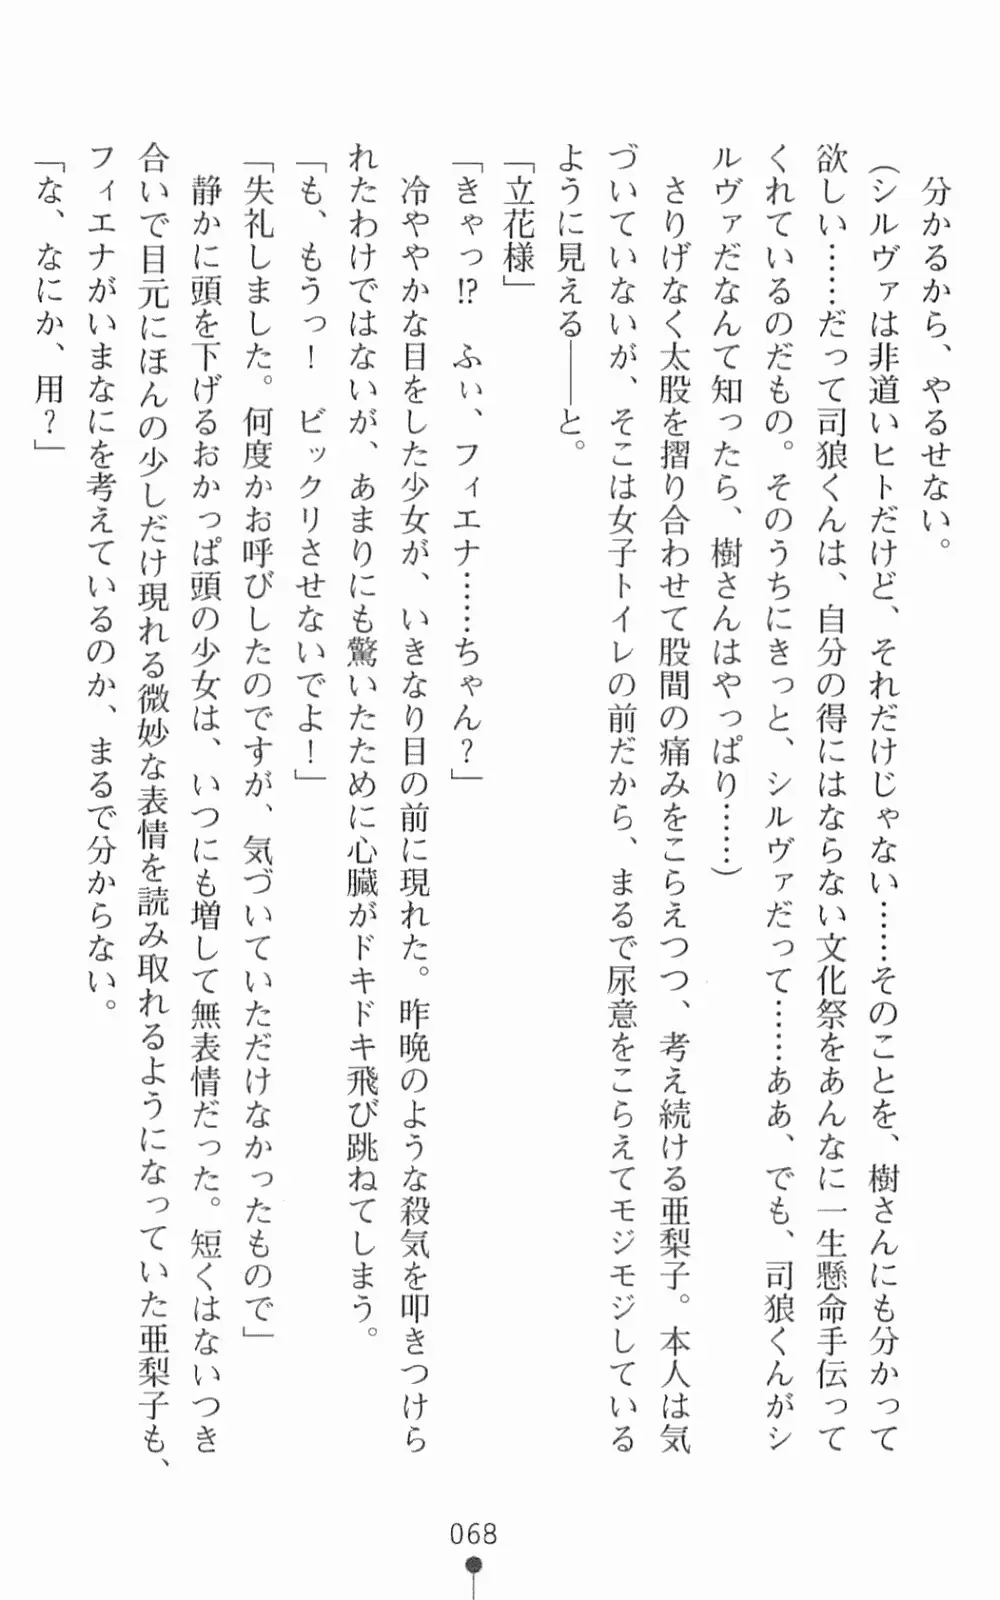 分かるから、やるせない。
（シルヴァは非道いヒトだけど、それだけじゃない……そのことを、樹さんにも分かって
欲しい……だって司狼くんは、自分の得にはならない文化祭をあんなに一生懸命手伝って
くれているのだもの。そのうちにきっと、シルヴァだって……ああ、でも、司狼くんがシ
ルヴァだなんて知ったら、樹さんはやっぱり……）
さりげなく太股を摺り合わせて股間の痛みをこらえつつ、考え続ける亜梨子。本人は気
づいていないが、そこは女子トイレの前だから、まるで尿意をこらえてモジモジしている
ように見える――と。
「立花様」
「きゃっ!?　ふぃ、フィエナ……ちゃん？」
冷ややかな目をした少女が、いきなり目の前に現れた。昨晩のような殺気を叩きつけら
れたわけではないが、あまりにも驚いたために心臓がドキドキ飛び跳ねてしまう。
「も、もうっ！　ビックリさせないでよ！」
「失礼しました。何度かお呼びしたのですが、気づいていただけなかったもので」
静かに頭を下げるおかっぱ頭の少女は、いつにも増して無表情だった。短くはないつき
合いで目元にほんの少しだけ現れる微妙な表情を読み取れるようになっていた亜梨子も、
フィエナがいまなにを考えているのか、まるで分からない。
「な、なにか、用？」
068